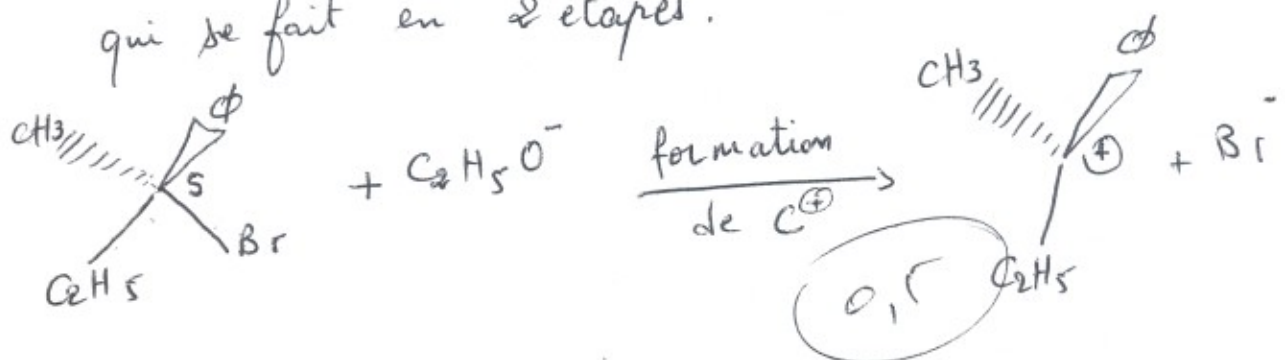 qui se fait en 2 etapes.
CH3 Φ S C2H5 Br + C2H5O⁻ formation de C⊕ CH3 Φ ⊕ C2H5 + Br⁻
0,5